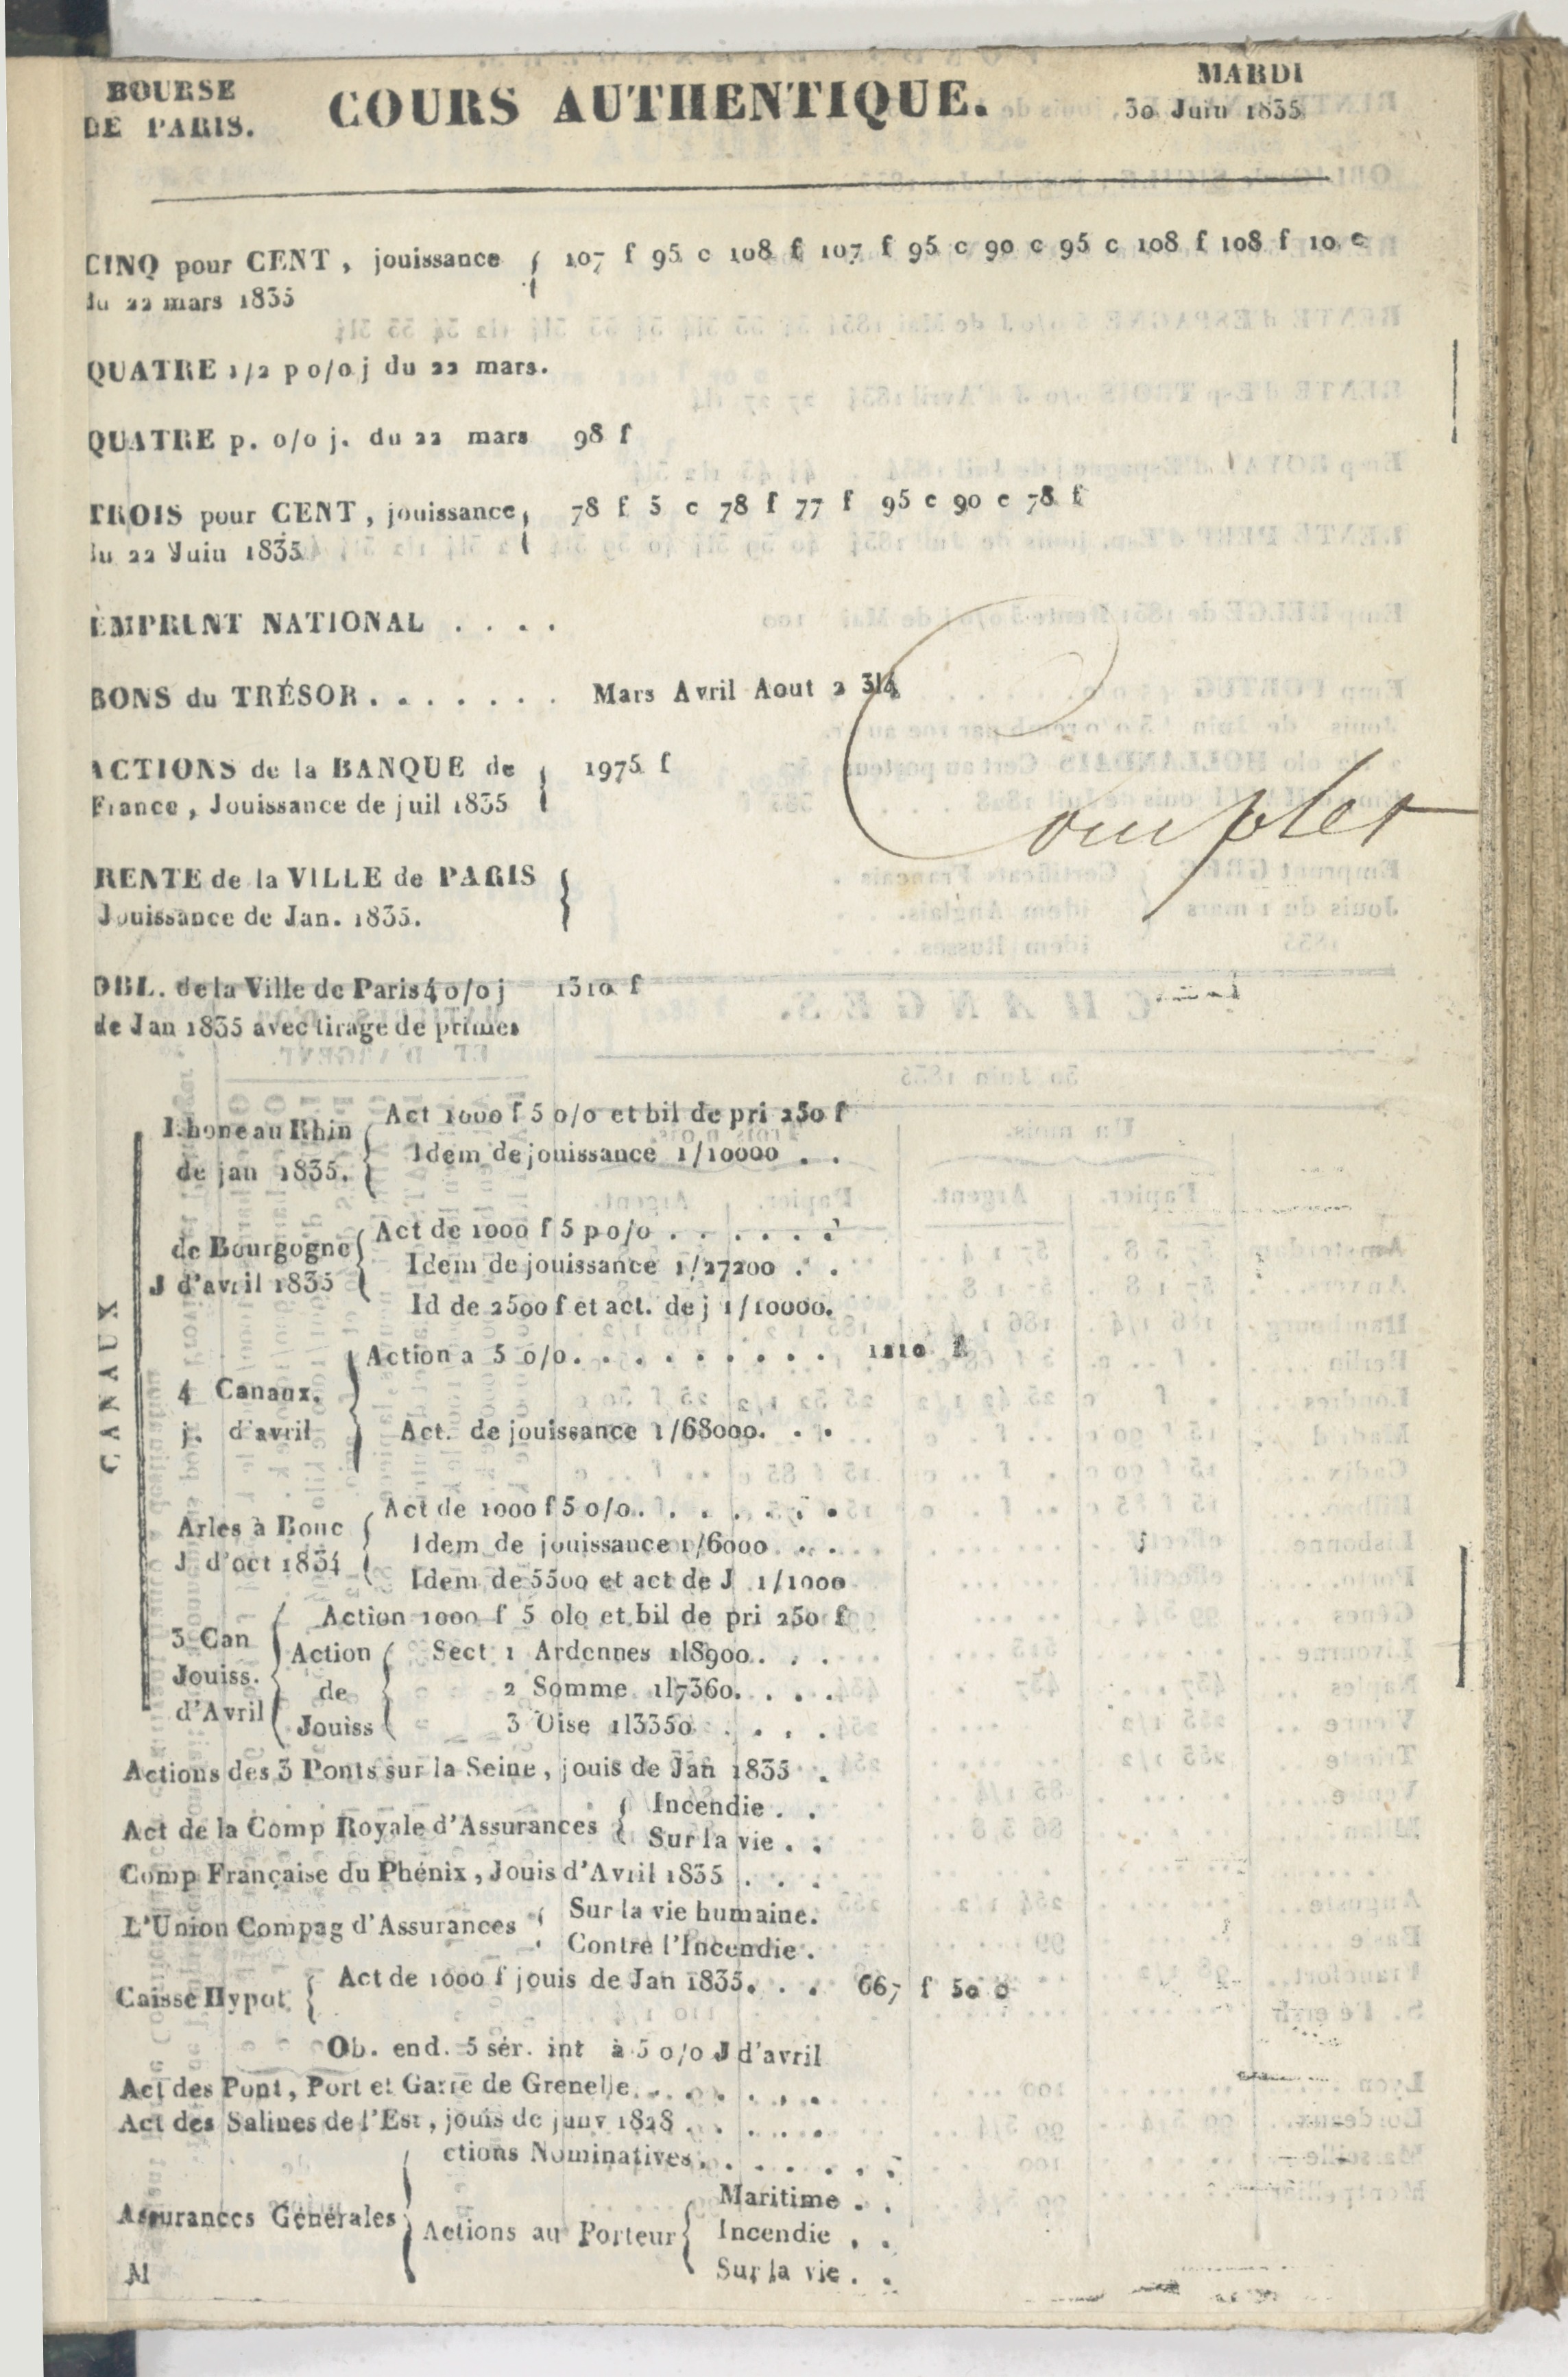 BOURSE DE PARIS.
COURS AUTHENTIQUE.
MARDI 30 Juin 1835
CINQ pour CENT, jouissance { 107 f 95 c 108 f 107 f 95 c 90 c 95 c 108 f 108 f 10 c
du 22 mars 1835
QUATRE 1/2 p o/o j du 22 mars.
QUATRE p. o/o j. du 22 mars 98 f
TROIS pour CENT, jouissance { 78 f 5 c 78 f 77 f 95 c 90 c 78 f
du 22 Juin 1835
EMPRUNT NATIONAL . . . .
BONS du TRÉSOR . . . . . . . Mars Avril Aout 2 3/4
ACTIONS de la BANQUE de { 1975 f
France, Jouissance de juil 1835
Complet
RENTE de la VILLE de PARIS {
Jouissance de Jan. 1835.
OBL. de la Ville de Paris 4 o/o j 1310 f
de Jan 1835 avec tirage de primes
CANAUX
Rhone au Rhin { Act 1000 f 5 o/o et bil de pri 250 f
de jan 1835. Idem de jouissance 1/10000 . .
de Bourgogne { Act de 1000 f 5 p o/o . . . . . .
J d'avril 1835 Idem de jouissance 1/27200 . .
Id de 2500 f et act. de j 1/10000.
4 Canaux. { Action a 5 o/o. . . . . . . . . . 1210 f
j. d'avril Act. de jouissance 1/68000. . .
Arles à Bouc { Act de 1000 f 5 o/o. . . . . . .
J d'oct 1834 Idem de jouissance 1/6000 . . .
Idem de 5500 et act de J 1/1000
3 Can { Action 1000 f 5 o|o et bil de pri 250 f
Jouiss. d'Avril Action de Jouiss { Sect 1 Ardennes 1|8900. . . .
2 Somme 1|7360. . . .
3 Oise 1|3350 . . . .
Actions des 3 Ponts sur la Seine, jouis de Jan 1835 .
Act de la Comp Royale d'Assurances { Incendie . .
Sur la vie . .
Comp Française du Phénix, Jouis d'Avril 1835 . . .
L'Union Compag d'Assurances { Sur la vie humaine.
Contre l'Incendie .
Caisse Hypot { Act de 1000 f jouis de Jan 1835. . . 667 f 50 c
Ob. end. 5 sér. int à 5 o/o J d'avril
Act des Pont, Port et Garre de Grenelle. . . . . . .
Act des Salines de l'Est, jouis de janv 1828 . . . . .
Assurances Générales { ctions Nominatives. . . . . . . .
Actions au Porteur { Maritime . .
Incendie . .
Sur la vie . .
M